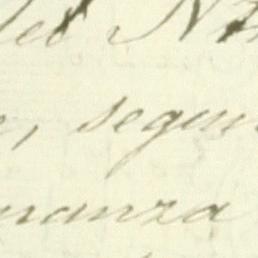 del N
, segun
nanza